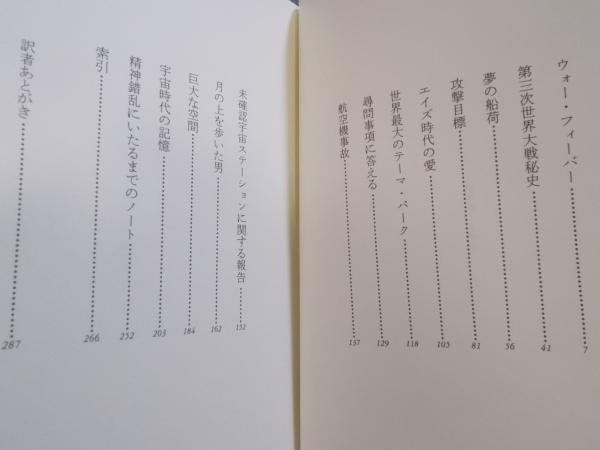 ウォー・フィーバー…………7
第三次世界大戦秘史…………41
夢の船荷…………56
攻撃目標…………81
エイズ時代の愛…………105
世界最大のテーマ・パーク…………118
尋問事項に答える…………129
航空機事故…………137
未確認宇宙ステーションに関する報告…………152
月の上を歩いた男…………162
巨大な空間…………184
宇宙時代の記憶…………203
精神錯乱にいたるまでのノート…………252
索引…………266
訳者あとがき…………287